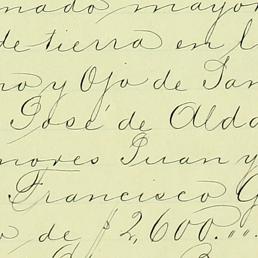 nado mayor
de tierra en l
no y Ojo de San
José de Alda
menores Juan y
Francisco G
o de $2,600."."